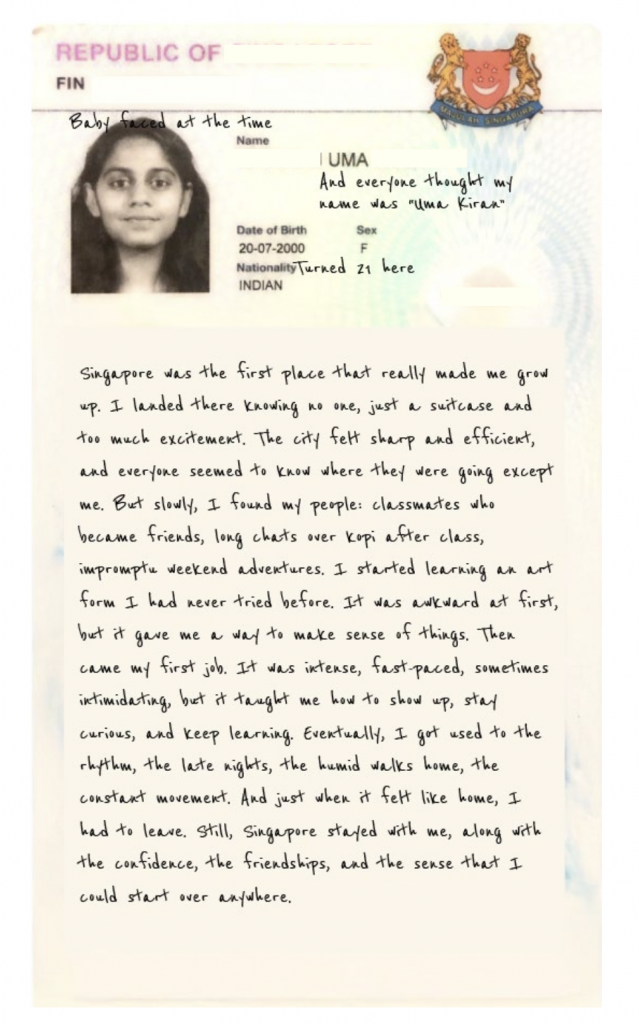 REPUBLIC OF
FIN
MAJULAH SINGAPURA
Baby faced at the time
Name
UMA
And everyone thought my
name was "Uma Kiran"
Date of Birth Sex
20-07-2000 F
Nationality Turned 21 here
INDIAN
Singapore was the first place that really made me grow
up. I landed there knowing no one, just a suitcase and
too much excitement. The city felt sharp and efficient,
and everyone seemed to know where they were going except
me. But slowly, I found my people: classmates who
became friends, long chats over kopi after class,
impromptu weekend adventures. I started learning an art
form I had never tried before. It was awkward at first,
but it gave me a way to make sense of things. Then
came my first job. It was intense, fast-paced, sometimes
intimidating, but it taught me how to show up, stay
curious, and keep learning. Eventually, I got used to the
rhythm, the late nights, the humid walks home, the
constant movement. And just when it felt like home, I
had to leave. Still, Singapore stayed with me, along with
the confidence, the friendships, and the sense that I
could start over anywhere.